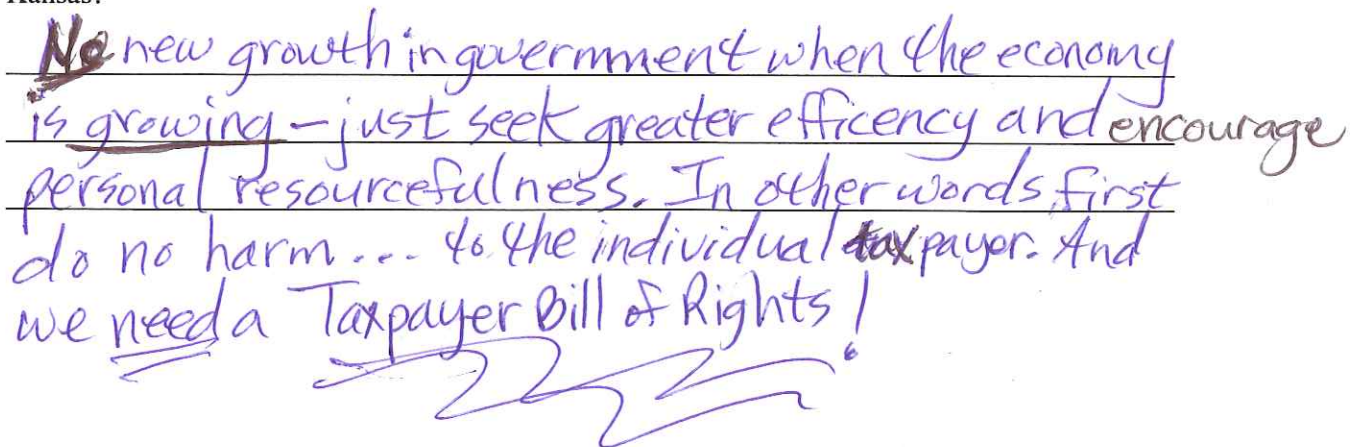 Kansas?
No new growth in government when the economy
is growing - just seek greater efficency and encourage
personal resourcefulness. In other words, first
do no harm... to the individual taxpayer. And
we need a Taxpayer Bill of Rights!